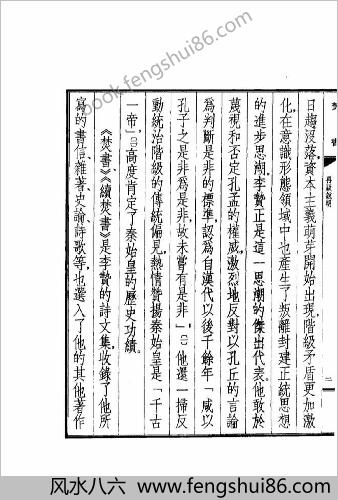 book.fengshui86.com
焚書
再版說明
二
日趨沒落資本主義萌芽開始出現，階級矛盾更加激
化，在意識形態領域中也產生了叛離封建正統思想
的進步思潮。李贄正是這一思潮的傑出代表。他敢於
蔑視和否定孔孟的權威，激烈地反對以孔丘的言論
為判斷是非的標準，認為自漢代以後千餘年「咸以
孔子之是非為是非，故未嘗有是非」。〔一〕他還一掃反
動統治階級的傳統偏見，熱情讚揚秦始皇是「千古
一帝」，〔二〕高度肯定了秦始皇的歷史功績。
《焚書》、《續焚書》是李贄的詩文集，收錄了他所
寫的書信、雜著、史論、詩歌等，也選入了他的其他著作
风水八六 www.fengshui86.com